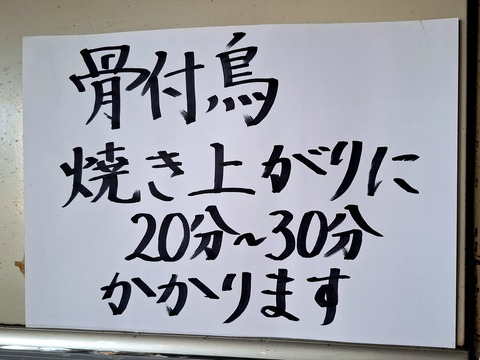 骨付鳥
焼き上がりに
20分~30分
かかります